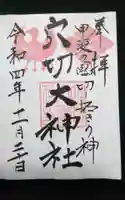 奉拝
甲斐国切拓きの神
穴切大神社
令和四年十一月二十日